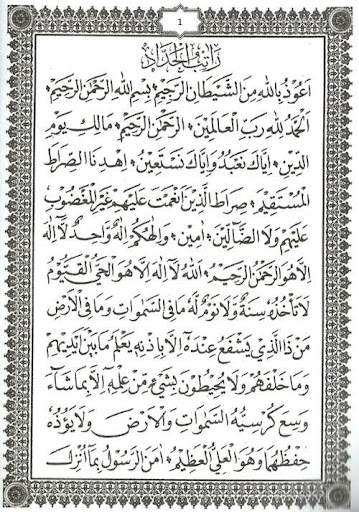 1
رَاتِبُ الْحَدَّادْ
اَعُوْذُ بِاللهِ مِنَ الشَّيْطَانِ الرَّجِيْمِ * بِسْمِ اللهِ الرَّحْمٰنِ الرَّحِيْمِ *
اَلْحَمْدُ لِلّٰهِ رَبِّ الْعَالَمِيْنَ * الرَّحْمٰنِ الرَّحِيْمِ * مَالِكِ يَوْمِ
الدِّيْنِ * اِيَّاكَ نَعْبُدُ وَاِيَّاكَ نَسْتَعِيْنُ * اِهْدِنَا الصِّرَاطَ
الْمُسْتَقِيْمَ * صِرَاطَ الَّذِيْنَ اَنْعَمْتَ عَلَيْهِمْ غَيْرِ الْمَغْضُوْبِ
عَلَيْهِمْ وَلَا الضَّالِّيْنَ * اٰمِيْنَ * وَاِلٰهُكُمْ اِلٰهٌ وَاحِدٌ لَا اِلٰهَ
اِلَّا هُوَ الرَّحْمٰنُ الرَّحِيْمُ * اَللهُ لَا اِلٰهَ اِلَّا هُوَ الْحَيُّ الْقَيُّوْمُ
لَا تَأْخُذُهُ سِنَةٌ وَلَا نَوْمٌ لَهُ مَا فِي السَّمٰوَاتِ وَمَا فِي الْاَرْضِ
مَنْ ذَا الَّذِيْ يَشْفَعُ عِنْدَهُ اِلَّا بِاِذْنِهِ يَعْلَمُ مَا بَيْنَ اَيْدِيْهِمْ
وَمَا خَلْفَهُمْ وَلَا يُحِيْطُوْنَ بِشَيْءٍ مِنْ عِلْمِهِ اِلَّا بِمَا شَاءَ
وَسِعَ كُرْسِيُّهُ السَّمٰوَاتِ وَالْاَرْضَ وَلَا يَؤُدُهُ
حِفْظُهُمَا وَهُوَ الْعَلِيُّ الْعَظِيْمُ * اٰمَنَ الرَّسُوْلُ بِمَا اُنْزِلَ